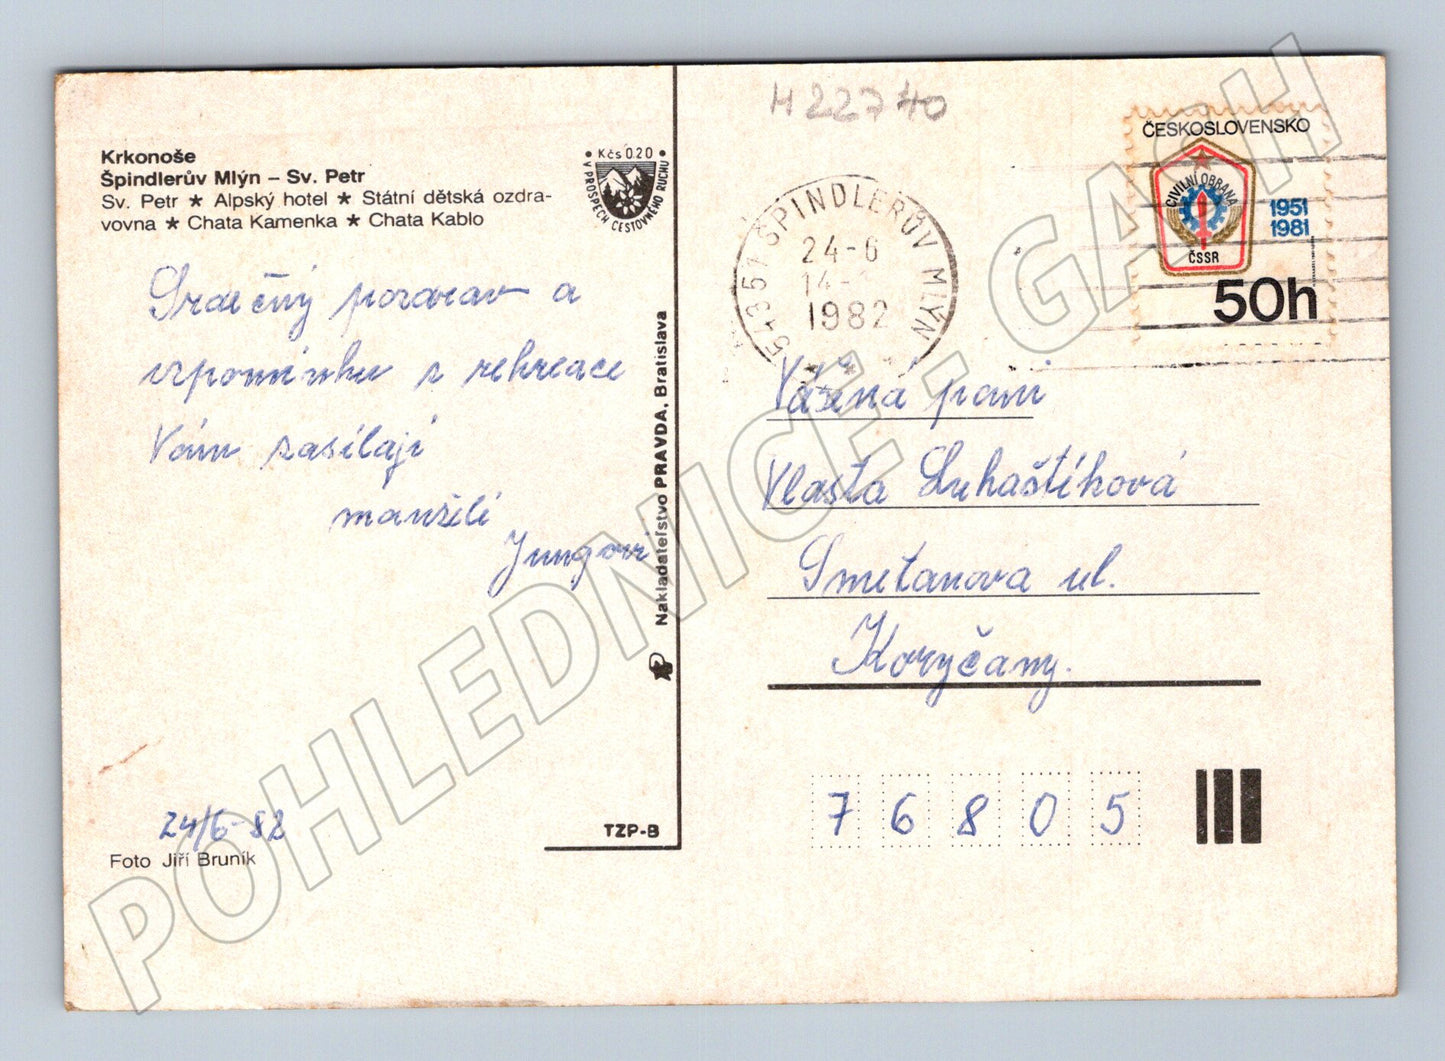 H22740
Krkonoše
Špindlerův Mlýn – Sv. Petr
Sv. Petr ★ Alpský hotel ★ Státní dětská ozdra-
vovna ★ Chata Kamenka ★ Chata Kablo
• Kčs 0.20 •
V PROSPĚCH CESTOVNÉHO RUCHU
Srdečný pozdrav a
vzpomínku z rekreace
Vám zasílají
manželé
Jungovi
24/6-82
Foto Jiří Bruník
TZP-B
Nakladateľstvo PRAVDA, Bratislava
543 51 ŠPINDLERŮV MLÝN
24-6
14-
1982
ČESKOSLOVENSKO
CIVILNÍ OBRANA
ČSSR
1951
1981
50h
Vážená paní
Vlasta Luhaštíková
Smetanova ul.
Koryčany.
76805
POHLEDNICE - GASH